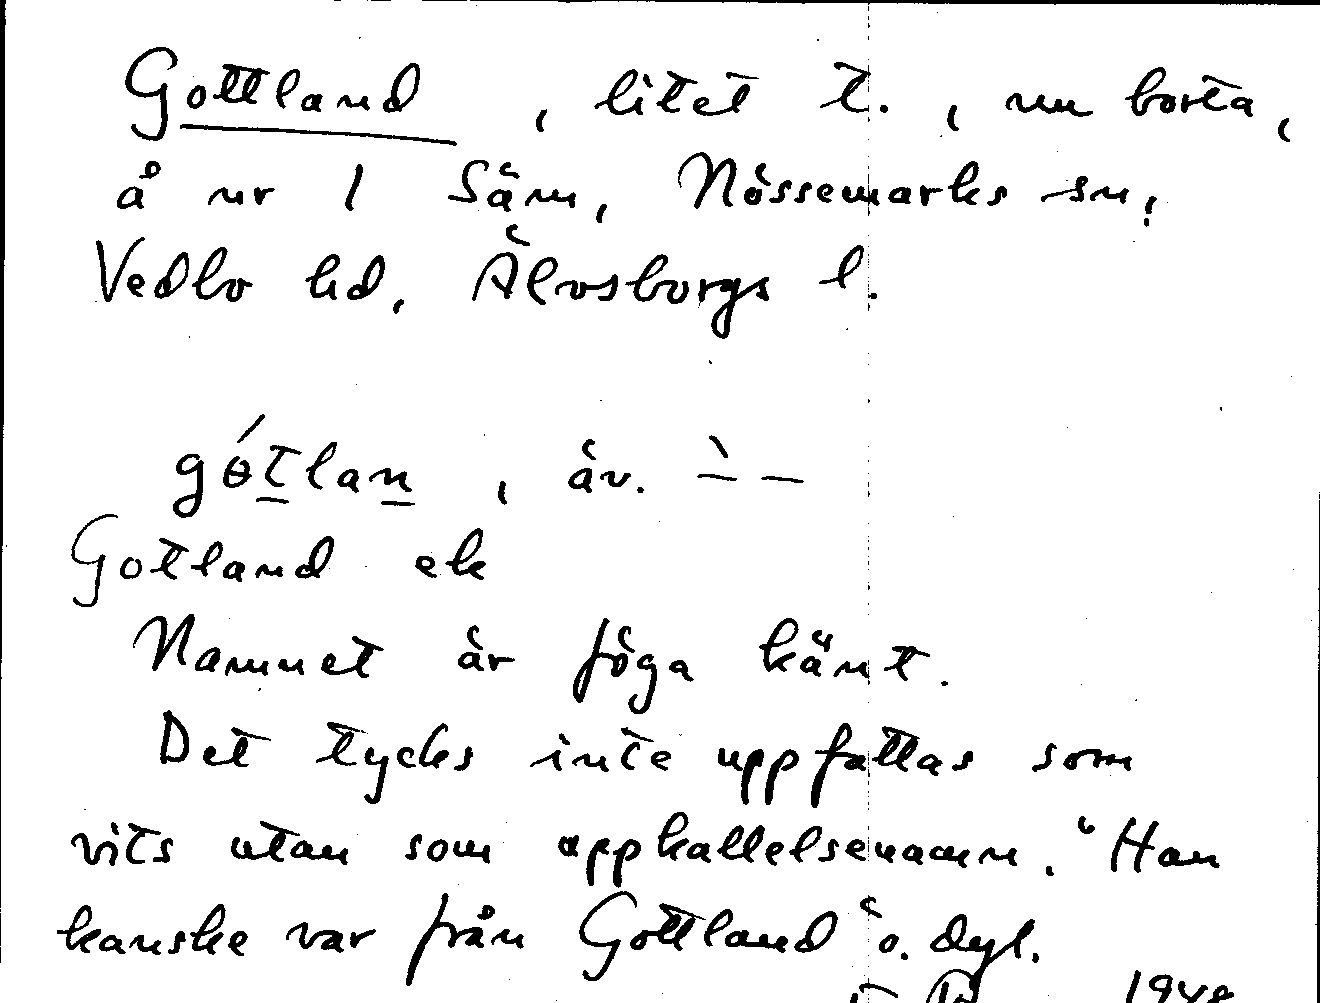 Gottland, litet t., nu borta,
å nr 1 Säm, Nössemarks sn,
Vedbo hd, Älvsborgs l.
gótlan, äv. ̀– –
Gotland ek
Namnet är föga känt.
Det tycks inte uppfattas som
vits utan som uppkallelsenamn. "Han
kanske var från Gottland" o. dyl.
1948